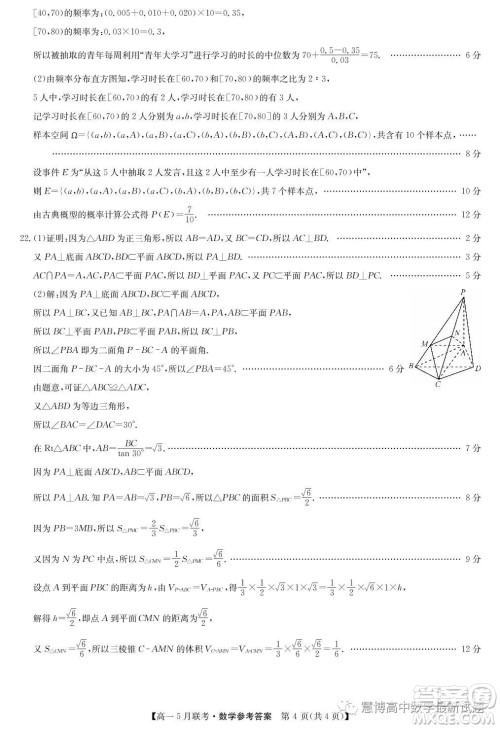 [40,70)的频率为:(0.005+0.010+0.020)×10=0.35,
[70,80)的频率为:0.03×10=0.3,
所以被抽取的青年每周利用“青年大学习”进行学习的时长的中位数为70+\frac{0.5-0.35}{0.03}=75. …… 6分
(2)由频率分布直方图可知,学习时长在[60,70)和[70,80)的频率之比为2:3,
5人中,学习时长在[60,70)的共有2人,学习时长在[70,80)的共有3人,
记学习时长在[60,70)的2人分别为a,b,学习时长在[70,80]的3人分别为
样本空间Ω={ 共含有10个样本点,
…… 8分
设事件E为“从这5人中抽取2人,且2人中至少有一人学习时长在[60,70)中”,
则E=
由古典概型的概率计算公式得P(E)=\frac{7}{10}. …… 10分
22.(1)证明:因为△ABD为正三角形,所以AB=AD,又CB=CD,所以AC⊥BD. …… 2分
又PA⊥底面ABCD,BD⊂平面ABCD,所以PA⊥BD. …… 4分
AC∩PA=A,又BD⊄平面PAC,所以BD⊥平面PAC. …… 5分
(2)解:因为PA⊥底面ABCD,BC⊂平面ABCD,
所以PA⊥BC,又PA∩AB=A,所以BC⊥平面PAB,
所以BC⊥平面PAB,PB⊂平面PAB,所以BC⊥PB,
所以∠PBA即为二面角P-BC-A的平面角,
因二面角P-BC-A的大小为45°,所以∠PBA=45°, …… 6分
由题意,可证△ABC≌△ADC,
又△ABD为等边三角形,
所以∠BAC=30°,
在Rt△ABC中,AB=\frac{BC}{tan 30°}=√3. …… 7分
因为PA⊥底面ABCD,
所以PA⊥AB,PA=AB=√3,PB=√6,所以△PBC的面积S△PBC=\frac{√6}{2}. …… 8分
因为PB=3MB,所以S△PMC=\frac{2}{3}S△PBC=\frac{√6}{3}.
又因为N为PC中点,所以S△CMN=\frac{1}{2}S△PMC=\frac{√6}{6}. …… 9分
设点A到平面PBC的距离为h,由VP-ABC=VA-PBC,得\frac{1}{3}×\frac{1}{2}×√3×√3×1=\frac{1}{3}×\frac{1}{2}×√6×1×h,
解得h=\frac{√6}{2},即点A到平面CMN的距离为\frac{√6}{2}. …… 11分
又S△CMN=\frac{√6}{6},所以三棱锥C-AMN的体积VC-AMN=VA-CMN=\frac{1}{3}×\frac{√6}{6}×\frac{√6}{2}=\frac{1}{6}. …… 12分
P
N
M
A
B
D
C
【高一5月联考·数学参考答案 第4页(共4页)】
慧博高中数学最新试题